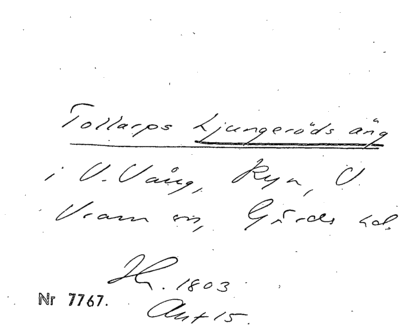 Tollarps Ljungeröds äng
i V. Vång, Rya, V.
Vram sn, Gärds hd.
Hr. 1803
Nr 7767.
Akt 15.